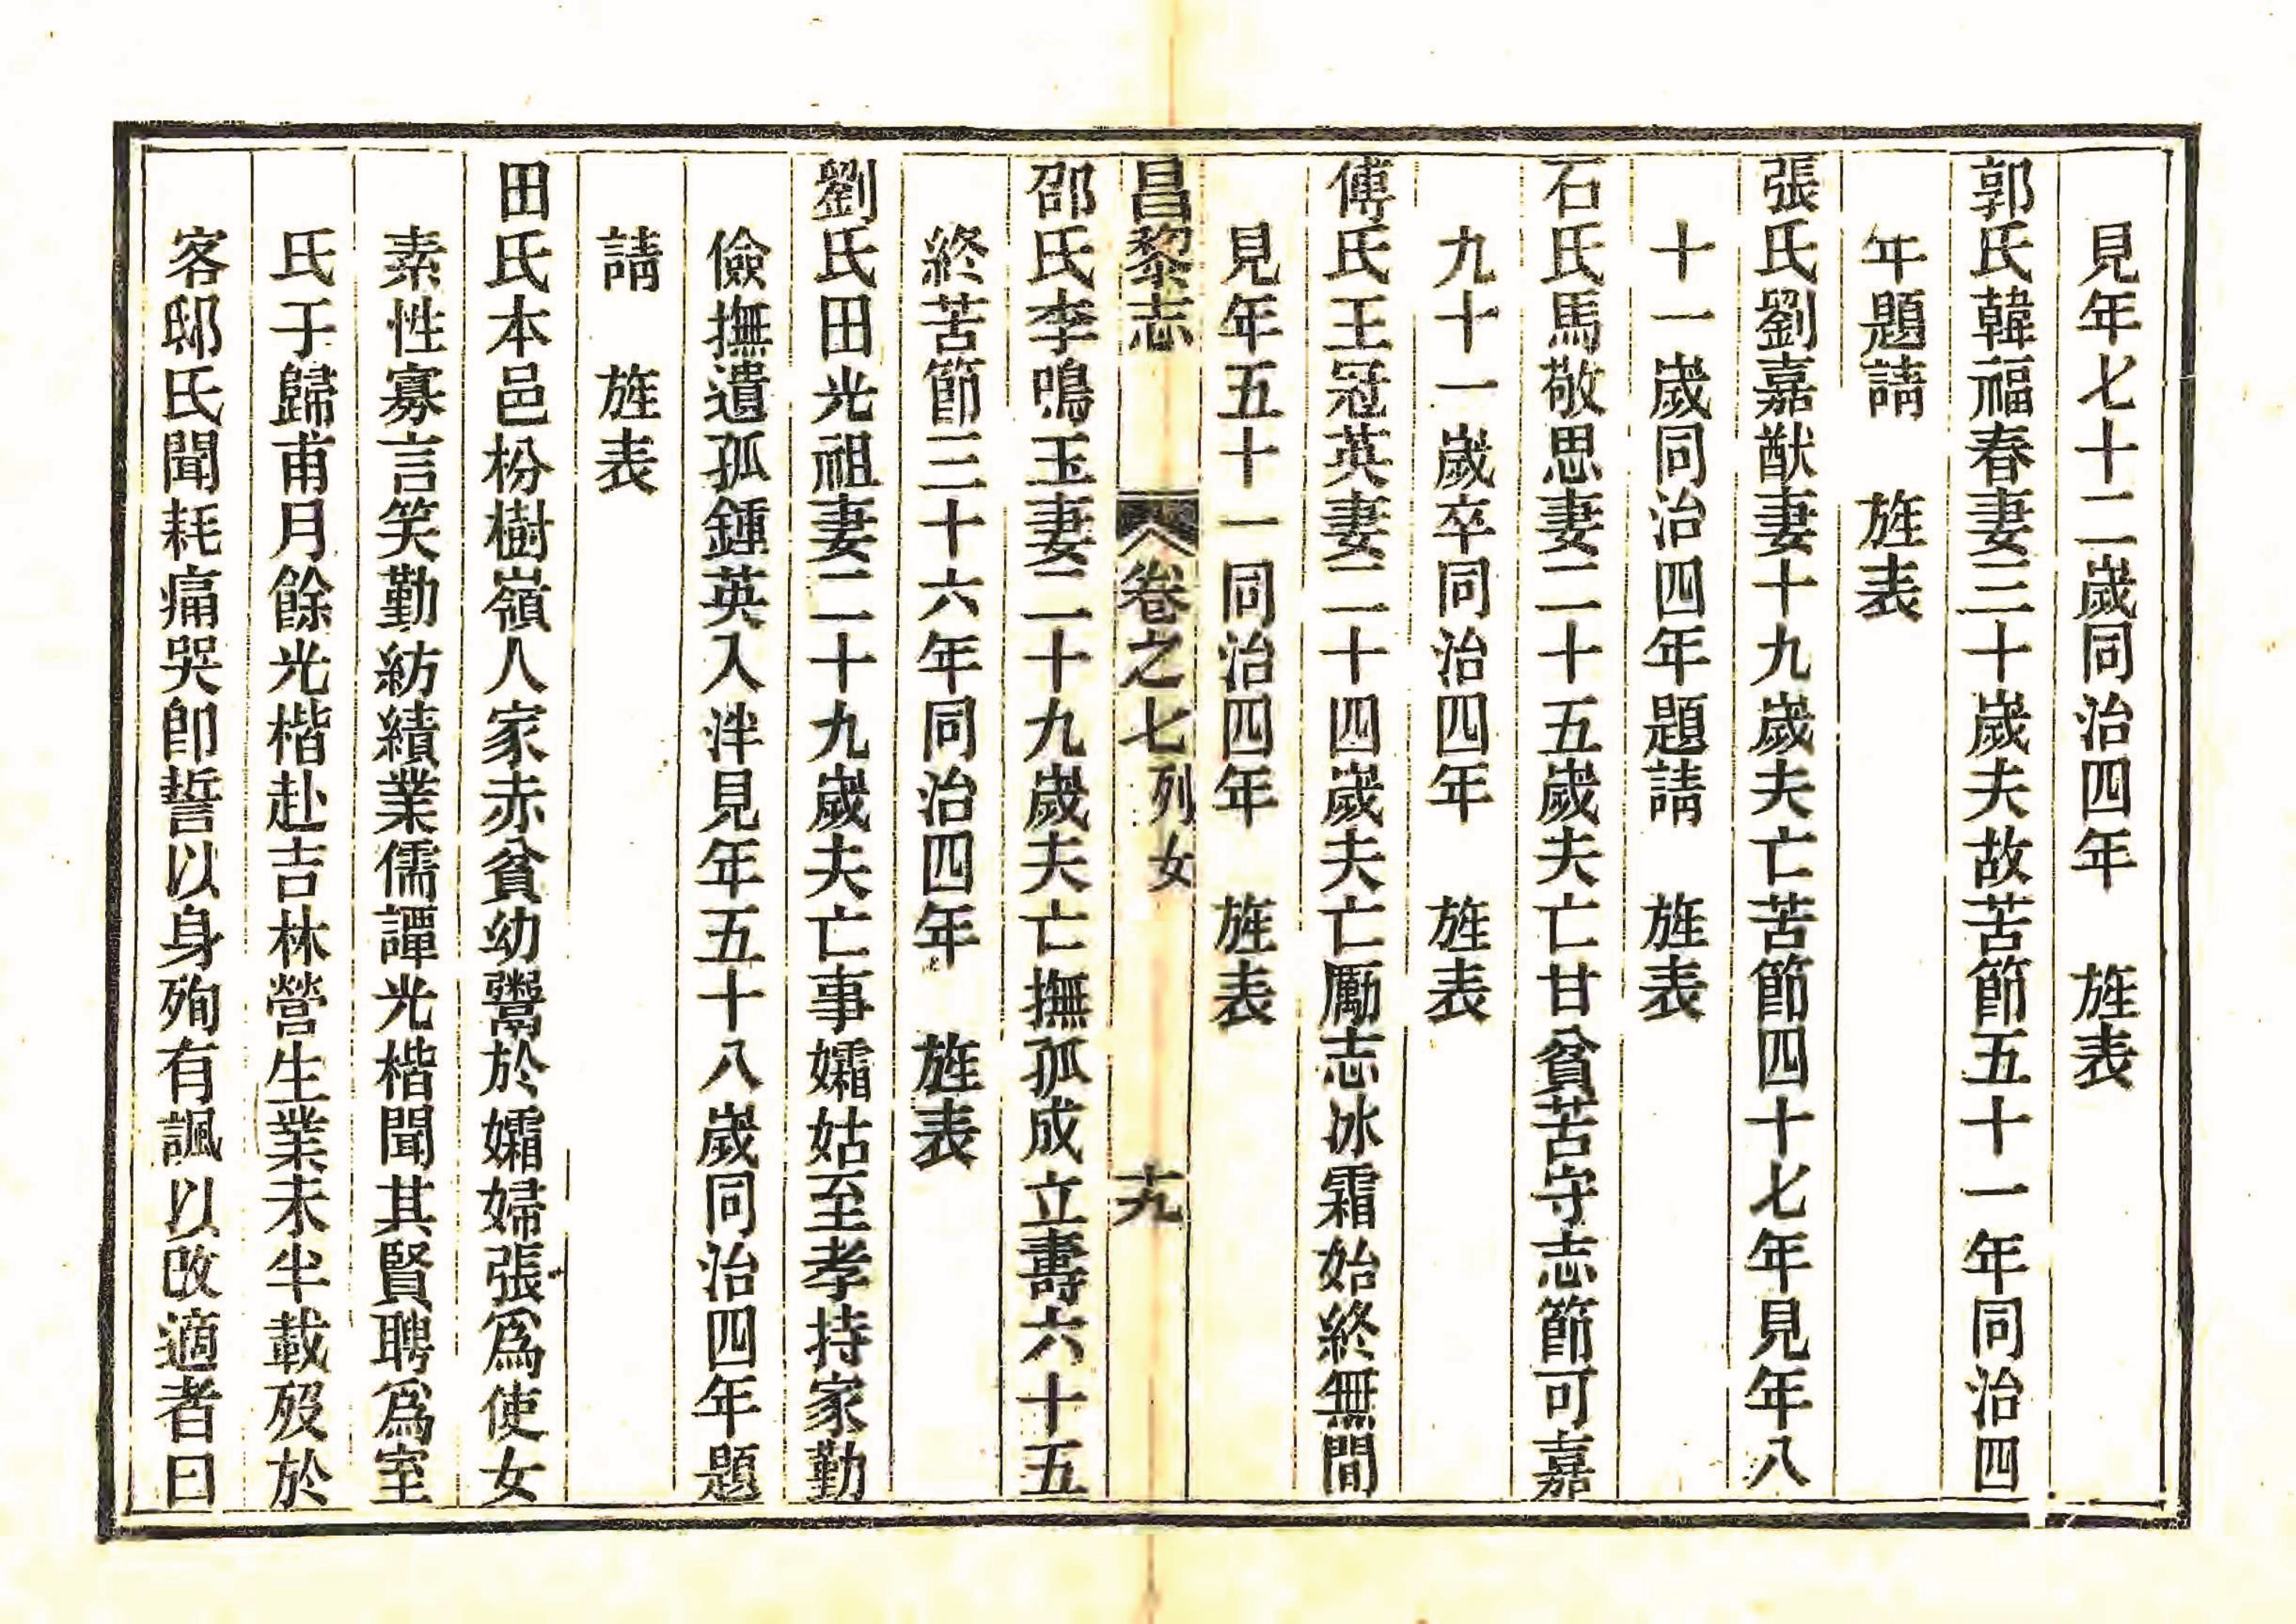 見年七十二嵗同治四年　旌表
郭氏韓福春妻三十嵗夫故苦節五十一年同治四
年題請　旌表
張氏劉嘉猷妻十九嵗夫亡苦節四十七年見年八
十一嵗同治四年題請　旌表
石氏馬敬思妻二十五嵗夫亡甘貧苦守志節可嘉
九十一嵗卒同治四年　旌表
傅氏王冠英妻二十四嵗夫亡勵志冰霜始終無間
見年五十一同治四年　旌表
昌黎志　卷之七　列女　十九
邵氏李鳴玉妻二十九嵗夫亡撫孤成立壽六十五
終苦節三十六年同治四年　旌表
劉氏田光祖妻二十九嵗夫亡事孀姑至孝持家勤
儉撫遺孤鍾英入泮見年五十八嵗同治四年題
請　旌表
田氏本邑枌樹嶺人家赤貧幼鬻於孀婦張爲使女
素性寡言笑勤紡績業儒譚光楷聞其賢聘爲室
氏于歸甫月餘光楷赴吉林營生業未半載殁於
客邸氏聞耗痛哭卽誓以身殉有諷以改適者曰